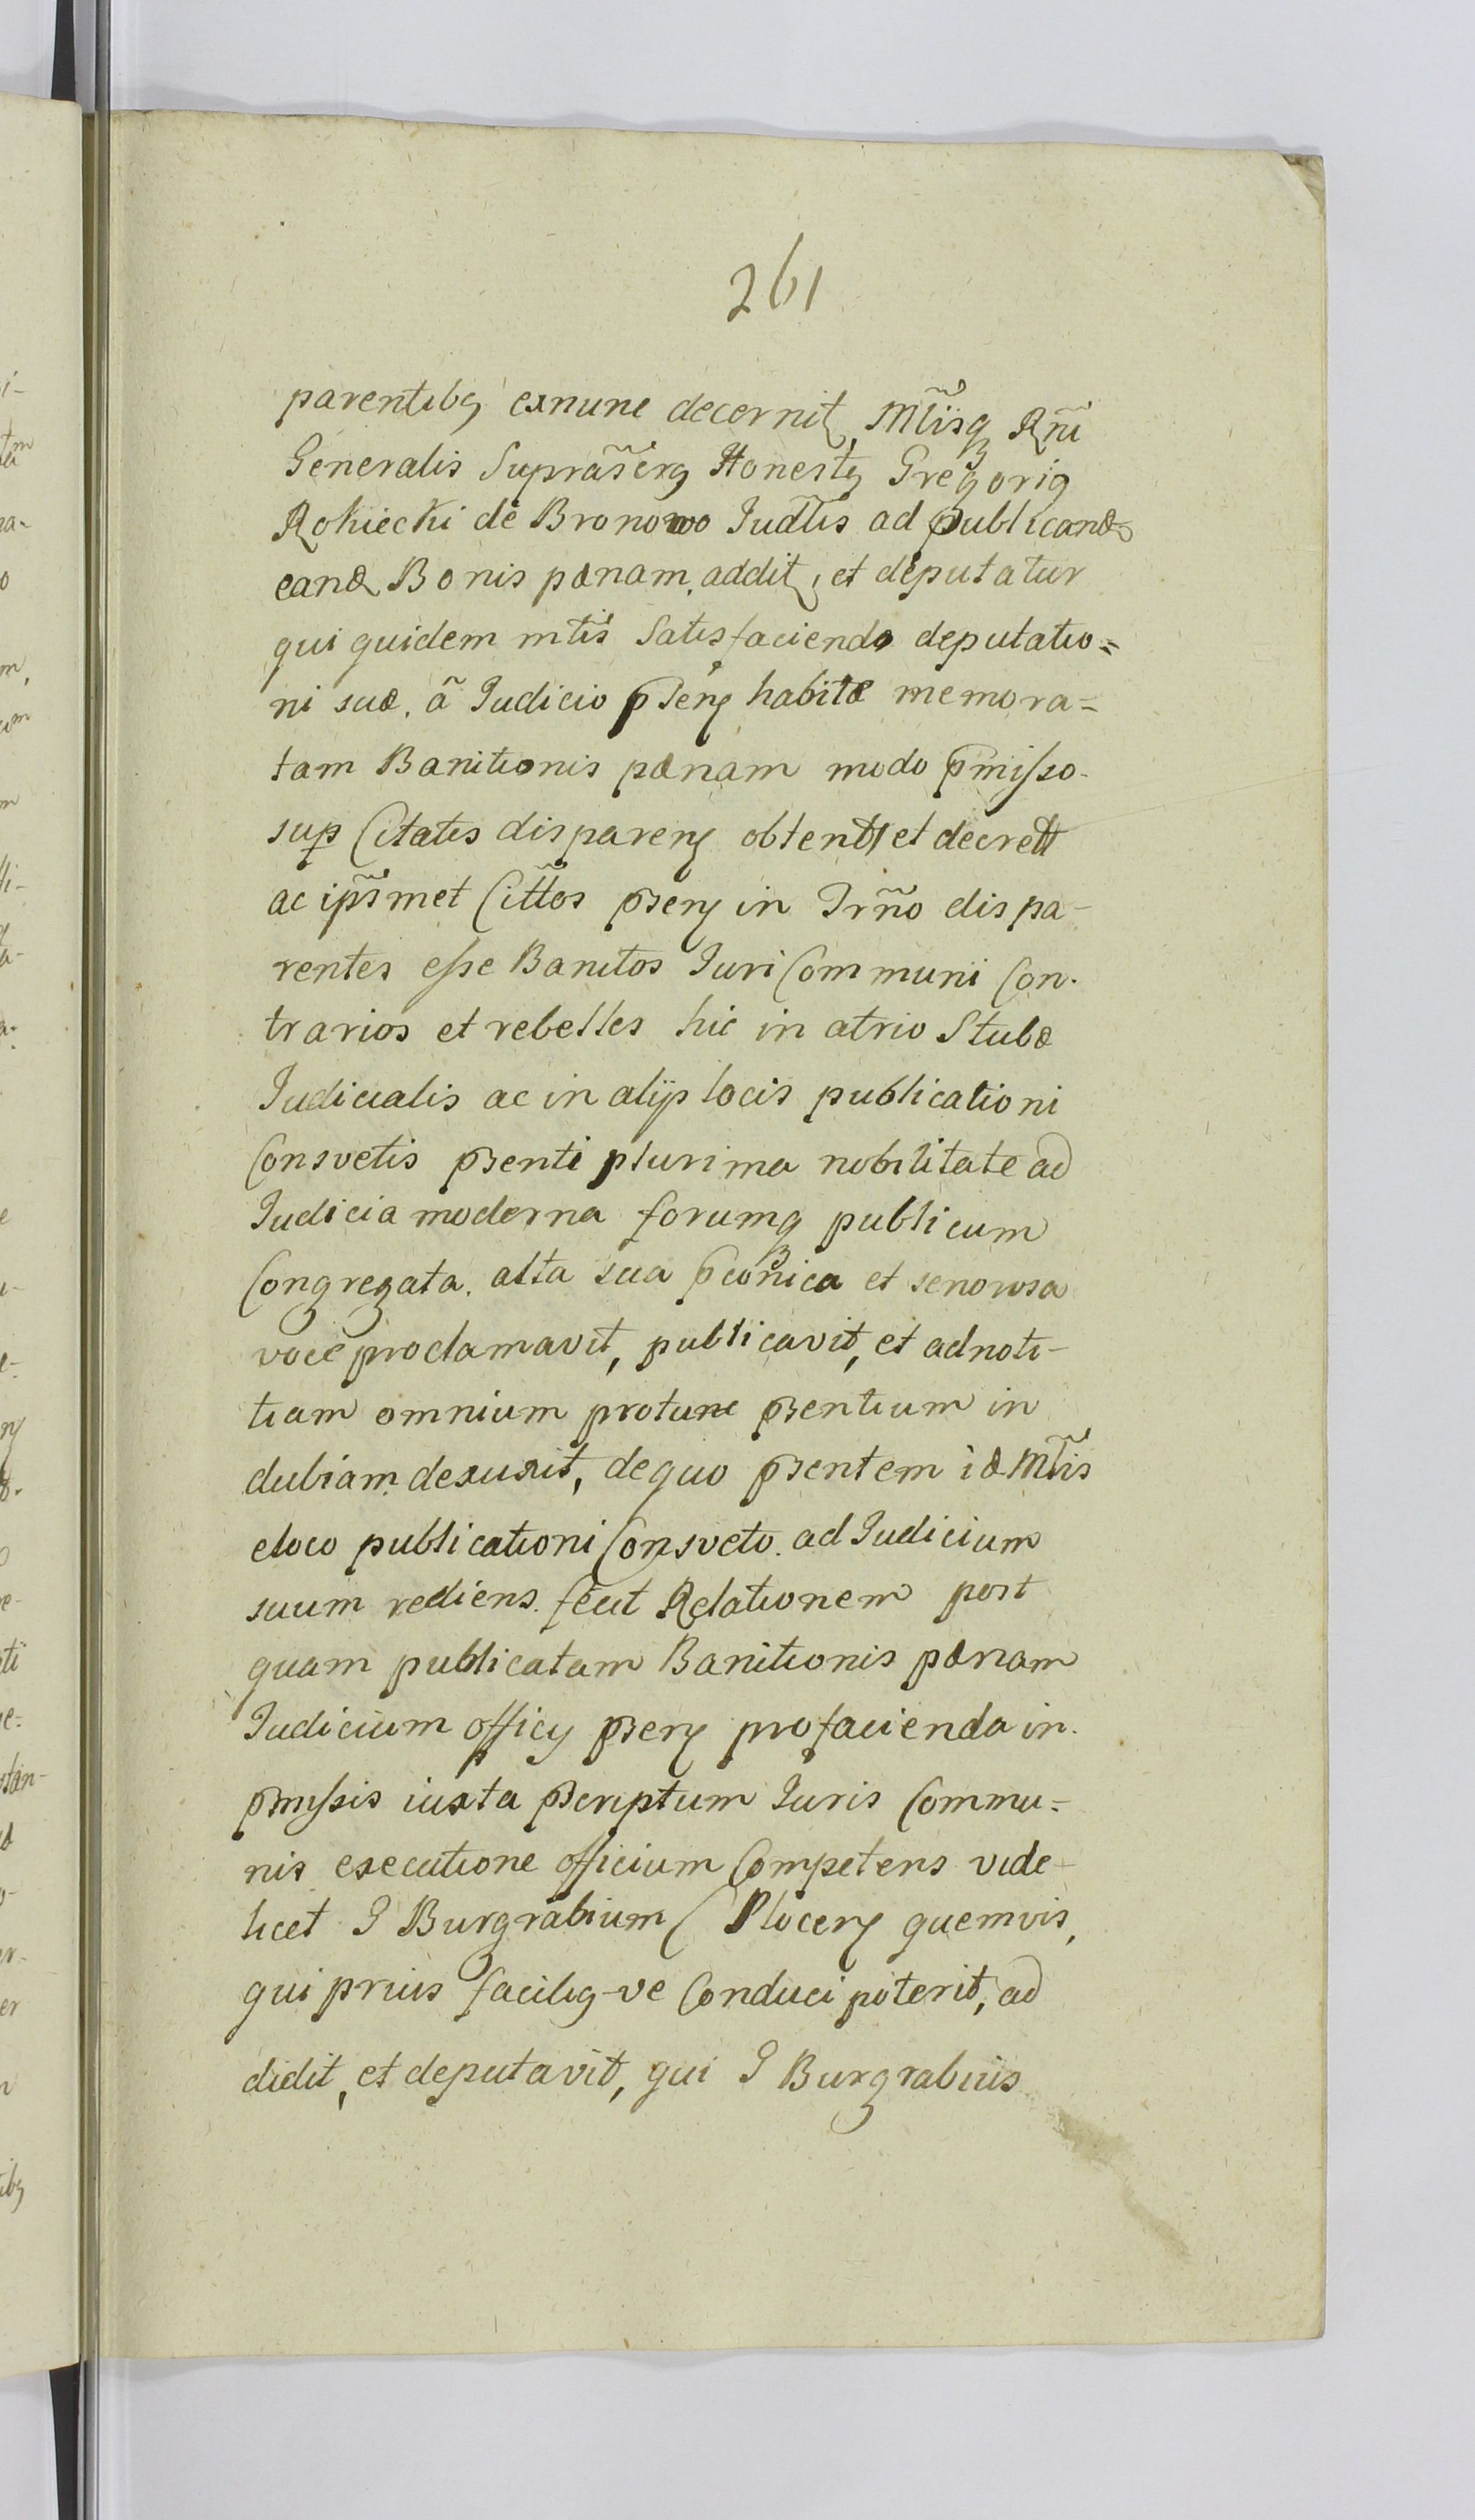 261
parentibq exnunc decernit, Mtĩsq Rñi
Generalis Suprãscrq Honestq Gregoriq
Rokiecki de Bronowo Judtis ad publicand
eand Bonis pænam, addit, et deputatur
qui quidem mtĩs Satisfaciendo deputatio=
ni suæ, ã Judicio pseñ habitæ memora=
tam Banitionis pænam modo pmisso
sup Citatis disparen obtent et decrett
ac ipsĩmet Cittos psen in Trño dispa-
rentes esse Banitos Juri Communi Con-
trarios et rebelles hic in atrio Stubæ
Judicialis ac in alijs locis publicationi
Consvetis psenti plurima nobilitate ad
Judicia moderna forumq publicum
Congregata, alta sua pconica et senorosa
voce proclamavit, publicavit, et adnoti-
tiam omnium protunc psentium in
dubiam deduxit, dequo psentem id Mtĩs
eloco publicationi Consveto ad Judicium
suum rediens fecit Relationem post
quam publicatam Banitionis pænam
Judicium officy psen profacienda in
pmissis iuxta pscriptum Juris Commu=
nis executione officium Competens vide-
licet G Burgrabium C Plocen quemvis,
qui prius faciliq-ve Conduci poterit, ad
didit, et deputavit, qui G Burgrabius